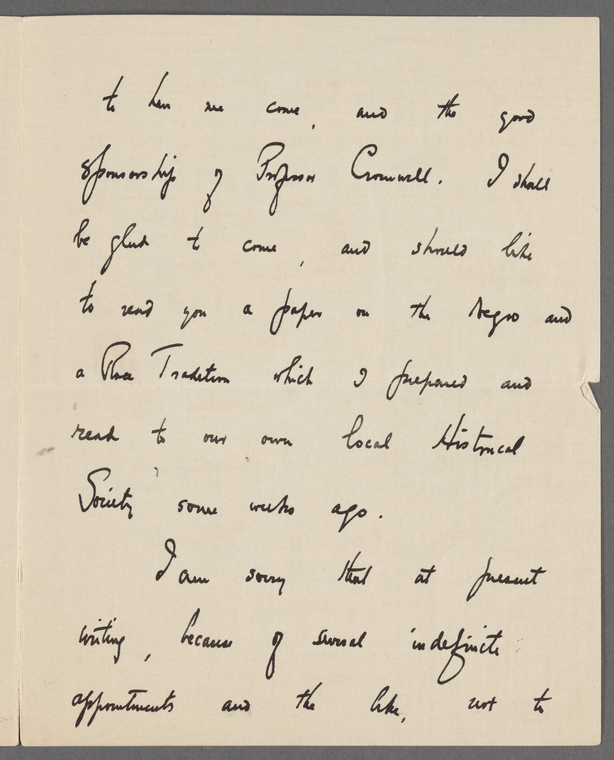 to have me come, and the good
sponsorship of Professor Cromwell. I shall
be glad to come, and should like
to read you a paper on the Negro and
a Race Tradition which I prepared and
read to our own local Historical
Society some weeks ago.
I am sorry that at present
writing, because of several indefinite
appointments and the like, not to